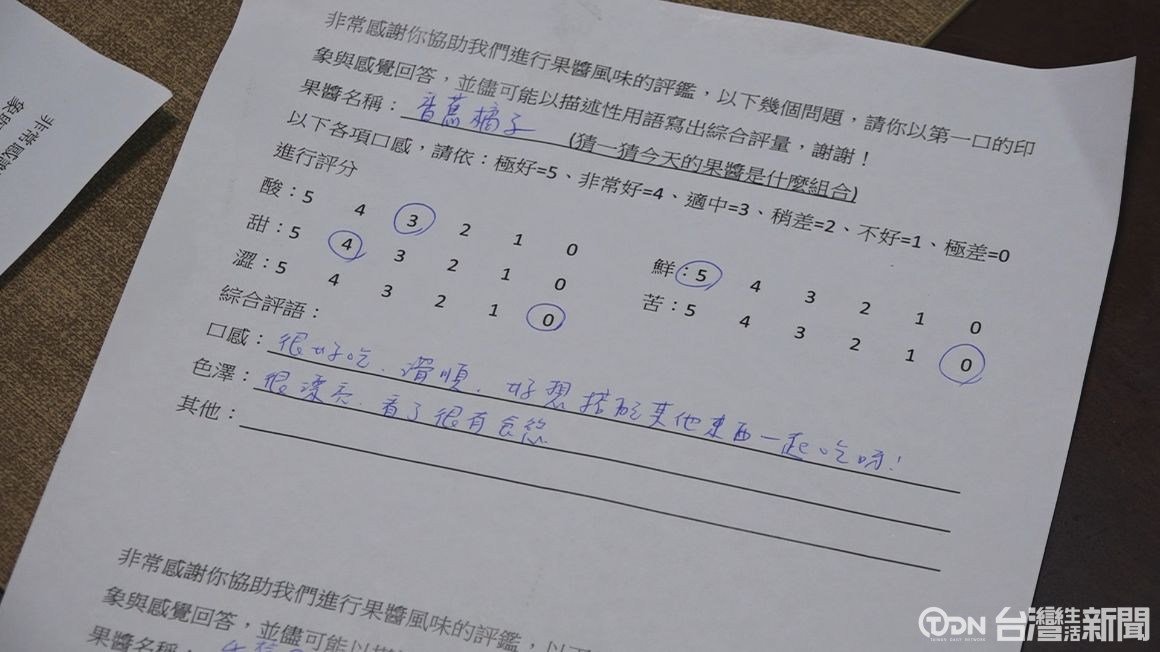 非常感謝你協助我們進行果醬風味的評鑑，以下幾個問題，請你以第一口的印
象與感覺回答，並儘可能以描述性用語寫出綜合評量，謝謝！
果醬名稱：香蕉橘子 (猜一猜今天的果醬是什麼組合)
以下各項口感，請依：極好=5、非常好=4、適中=3、稍差=2、不好=1、極差=0
進行評分
酸：5 4 3 2 1 0 鮮：5 4 3 2 1 0
甜：5 4 3 2 1 0 苦：5 4 3 2 1 0
澀：5 4 3 2 1 0
綜合評語：
口感：很好吃、滑順，好想搭配其他東西一起吃唷！
色澤：很漂亮，看了很有食慾
其他：
非常感謝你協助我們進行果醬風味的評鑑，以
象與感覺回答，並儘可能以描
果醬名稱：
非常感謝
TDN 台灣生活新聞
TAIWAN DAILY NETWORK